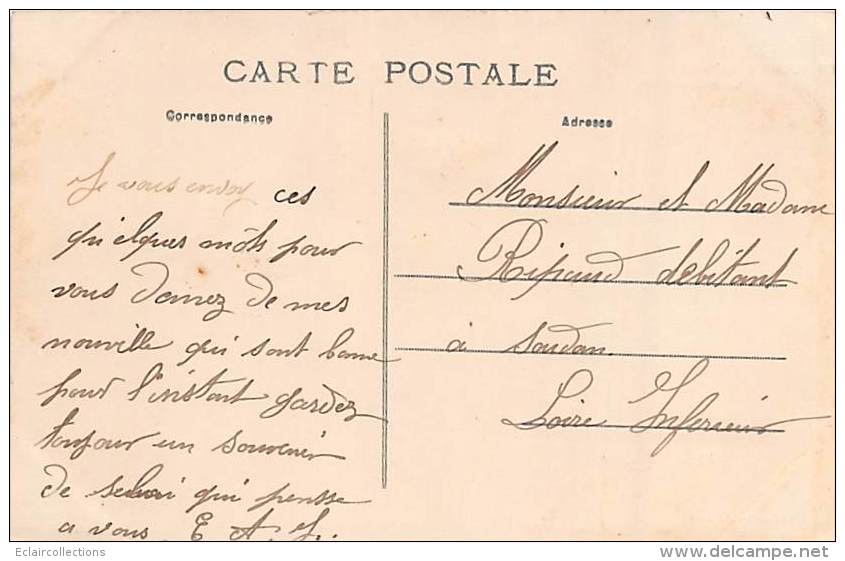 CARTE POSTALE
Correspondance
Je vous envoy ces
qu'elques môts pour
vous donnez de mes
nouvelle qui sont bonne
pour l'instant gardez
toujour un souvenir
de seluai qui pensse
a vous. E A. J.
Adresse
Monsieur et Madame
Ripaud debitant
à Soudan.
Loire Inferieur
Eclaircollections
delcampe.net